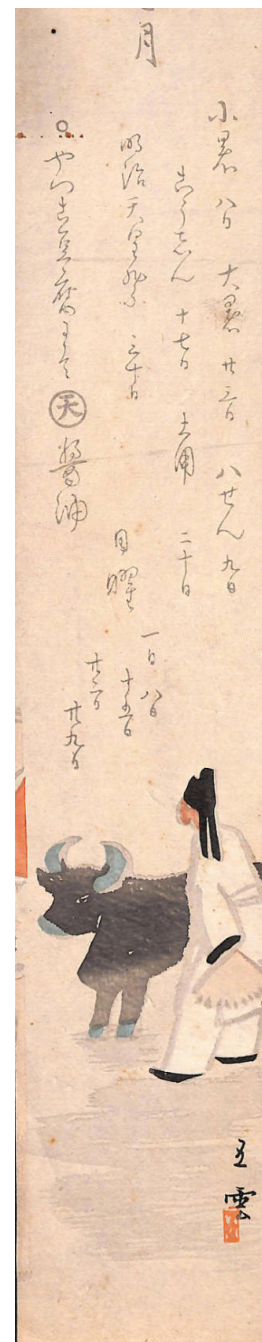 月
小暑 八日 大暑 廿三日 八せん 九日
かうしん 十七日 土用 二十日
明治天皇祭 三十日
日曜 一日 八日
十五日
廿二日
廿九日
○やつこ豆腐 天 醤油
五雲